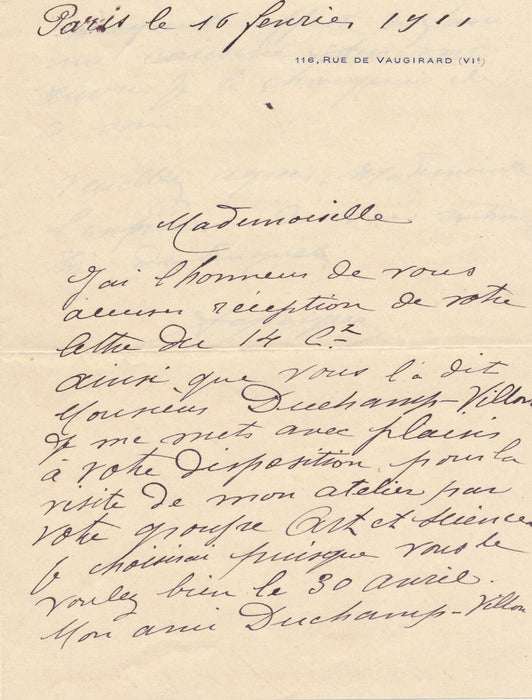 Paris le 16 fevrier 1911
116, RUE DE VAUGIRARD (VIᵉ)
Mademoiselle
J'ai l'honneur de vous
accuser réception de votre
lettre du 14 Ct
ainsi que vous l'a dit
Monsieur Duchamp-Villon
Je me mets avec plaisir
à votre disposition pour la
visite de mon atelier par
votre groupe Art et Science
Je choisirai puisque vous le
voulez bien le 30 avril.
Mon ami Duchamp-Villon